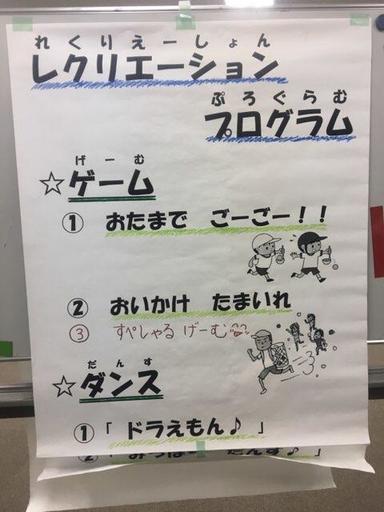 れくりえーしょん
レクリエーション
ぷろぐらむ
プログラム
げーむ
☆ゲーム
① おたまで ごーごー！！
② おいかけ たまいれ
③ すぺしゃる げーむ
だんす
☆ダンス
①「 ドラえもん♪ 」